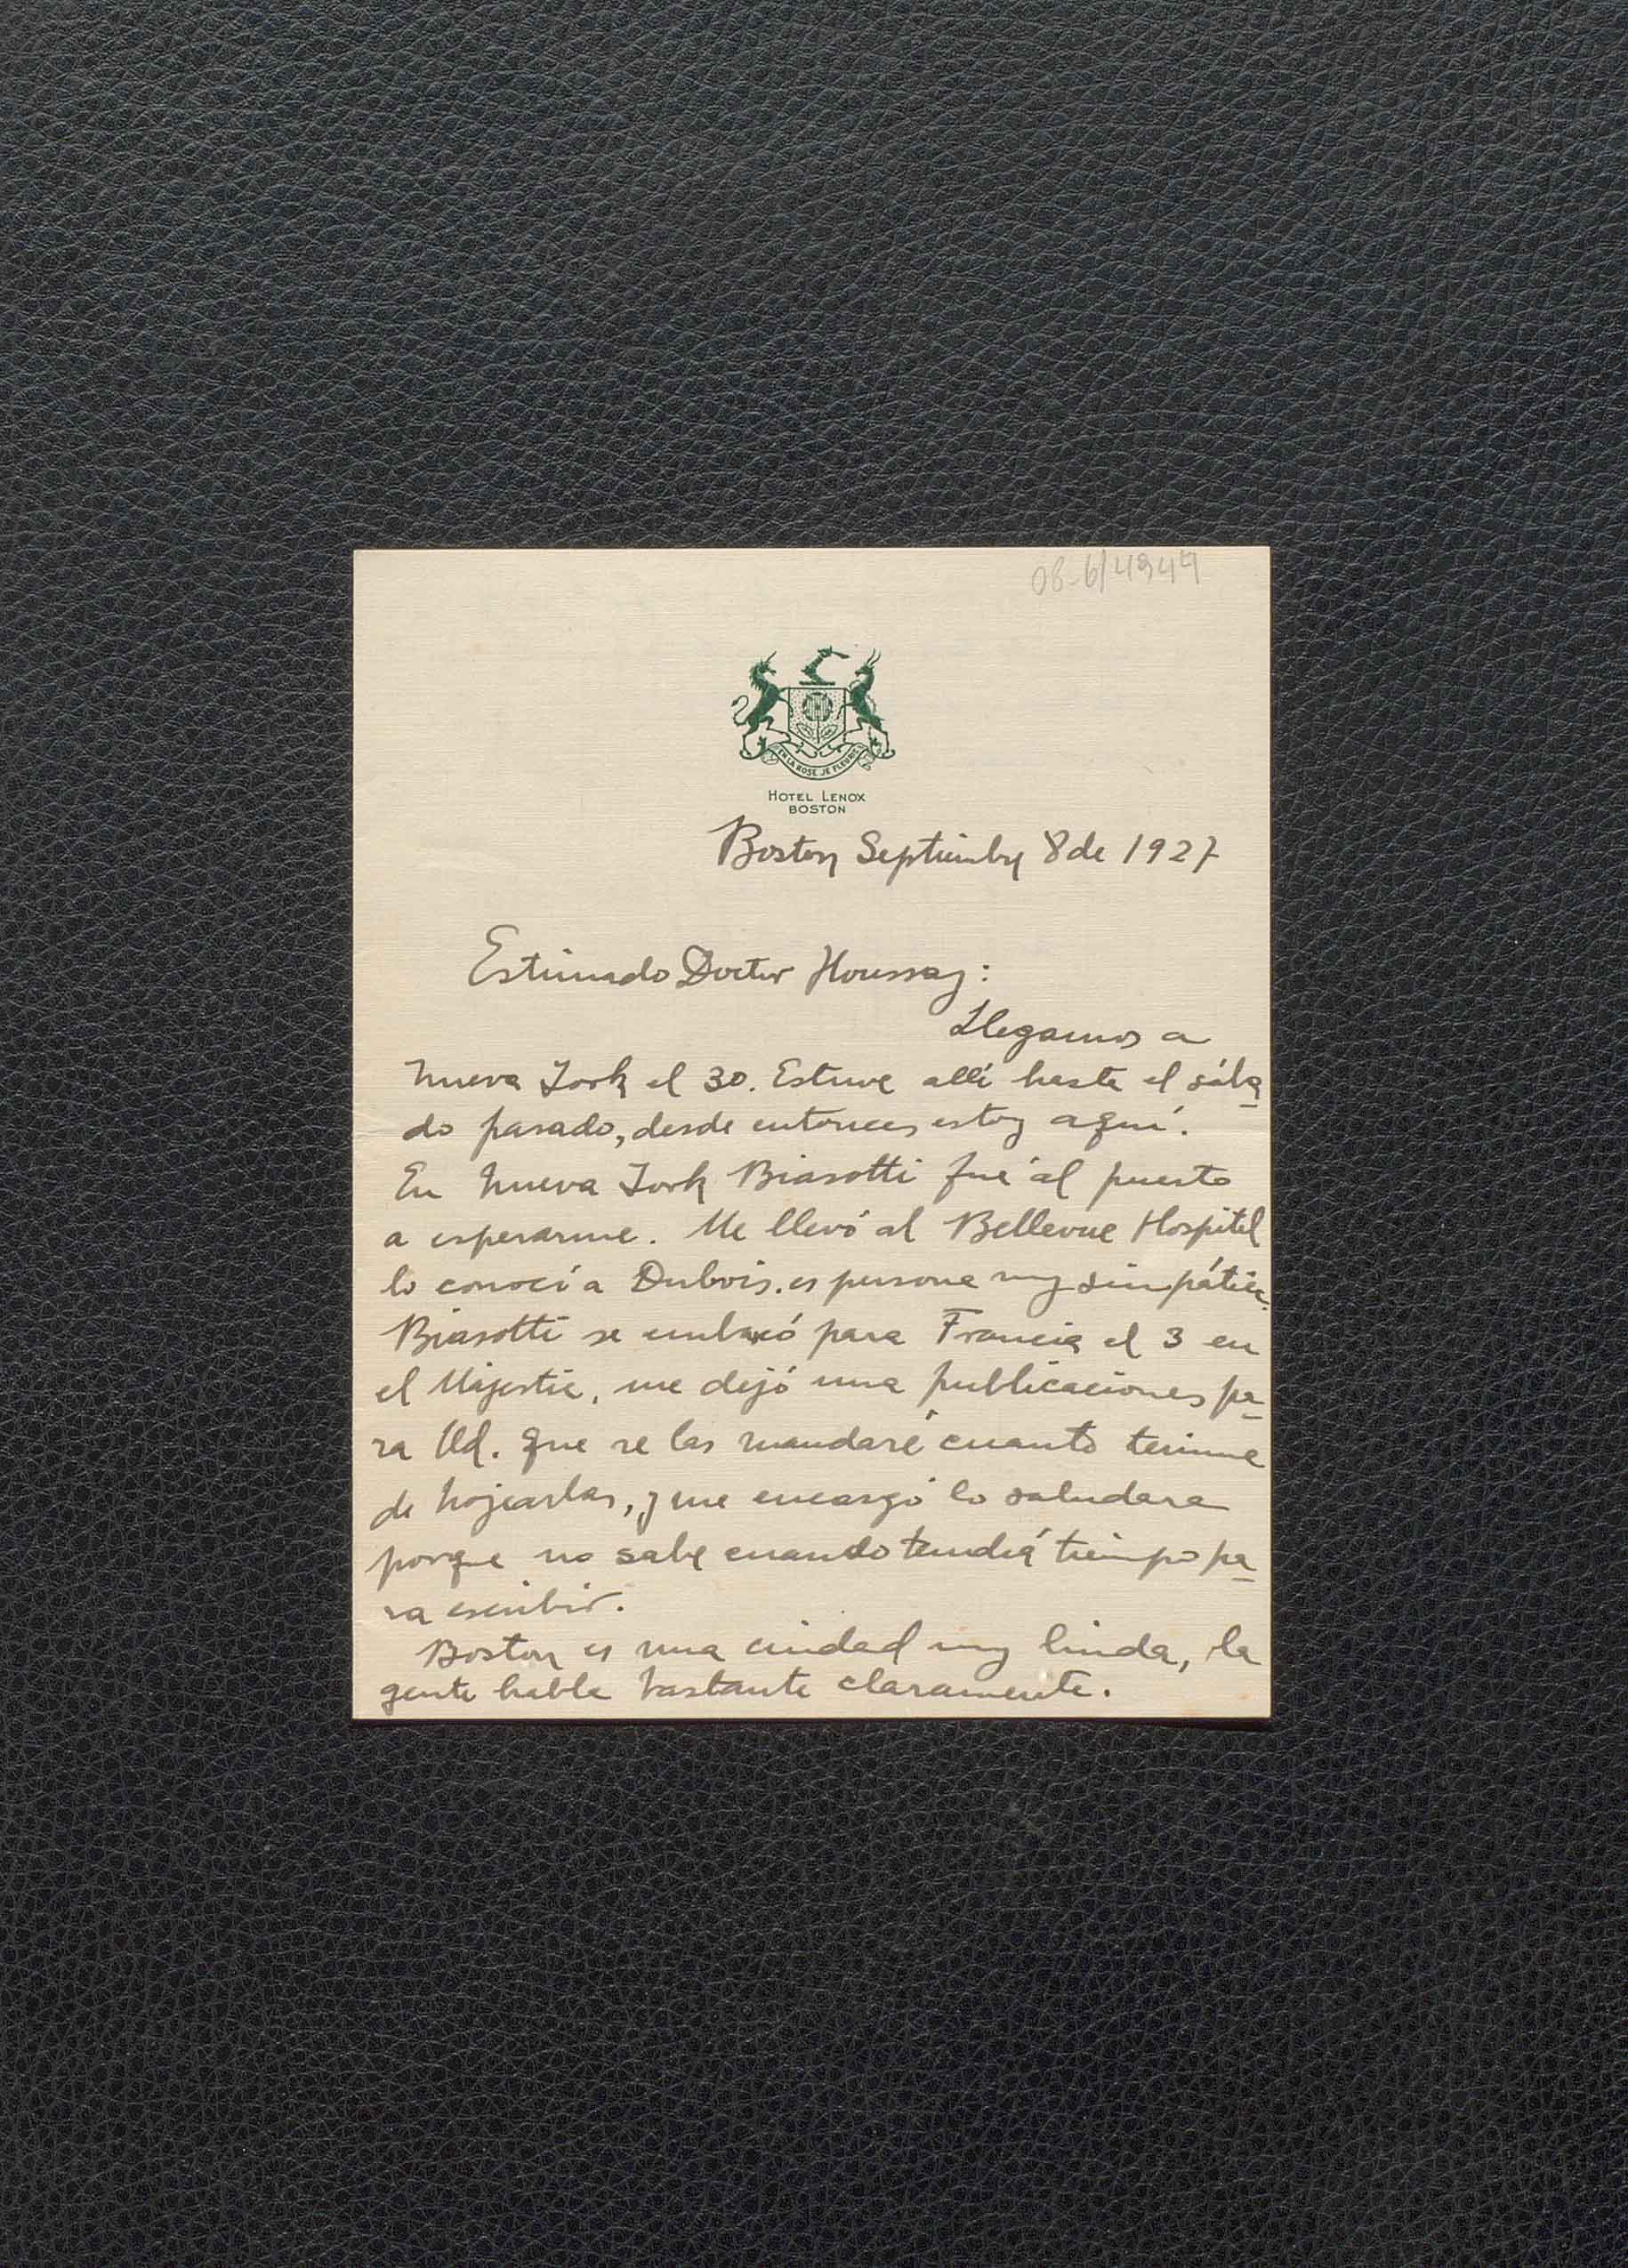 08-6/4949
EN LA ROSE JE FLEURIE
HOTEL LENOX
BOSTON
Boston Septiembre 8 de 1927
Estimado Doctor Houssay:
Llegamos a
Nueva York el 30. Estuve allí hasta el sába
do pasado, desde entonces estoy aquí.
En Nueva York Biasotti fué al puerto
a esperarme. Me llevó al Bellevue Hospital
lo conocí a Dubois. es persona muy simpática.
Biasotti se embarcó para Francia el 3 en
el Majestic, me dejó una publicaciones pa
ra Ud. que se las mandaré cuanto termine
de hojearlas, y me encargó lo saludara
porque no sabe cuando tendrá tiempo pa
ra escribir.
Boston es una ciudad muy linda, la
gente habla bastante claramente.